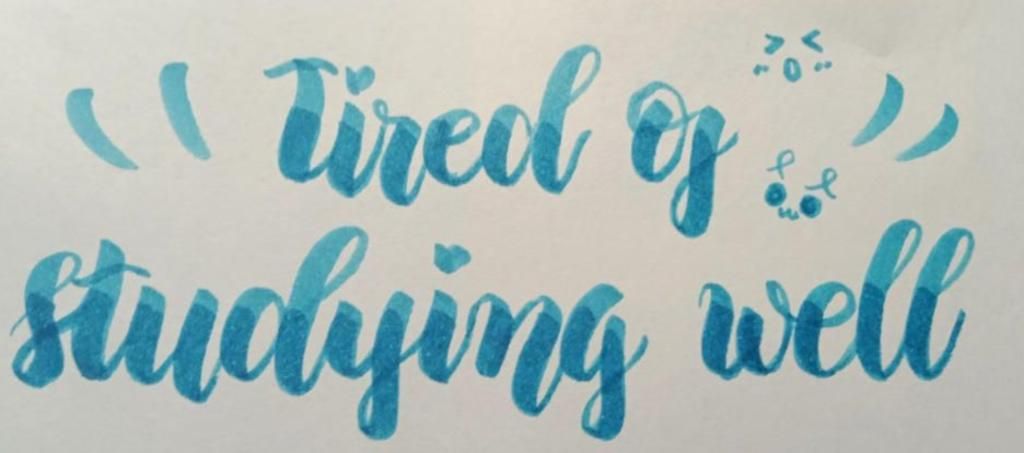 Tired of
studying well